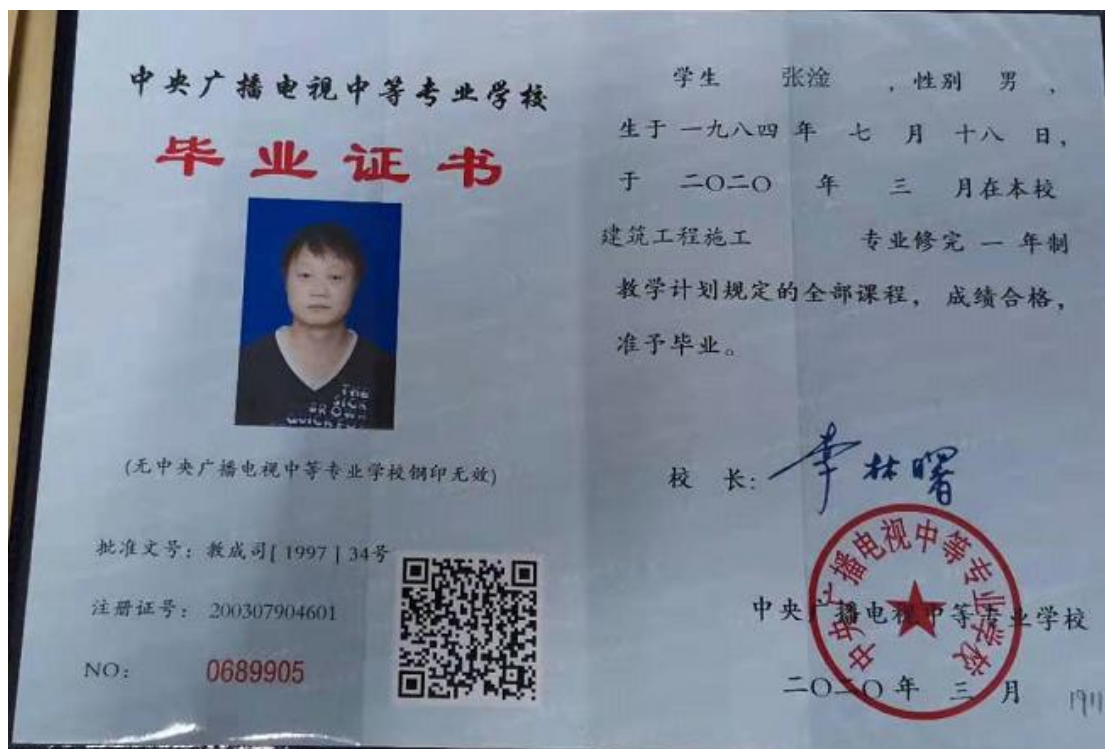 中央广播电视中等专业学校
毕业证书
THE
SICK
BROWN
(无中央广播电视中等专业学校钢印无效)
批准文号：教成司[1997]34号
注册证号：200307904601
NO：0689905
学生 张淦 ，性别 男 ，
生于 一九八四 年 七 月 十八 日，
于 二〇二〇 年 三 月在本校
建筑工程施工 专业修完 一 年制
教学计划规定的全部课程， 成绩合格，
准予毕业。
校 长：李林曙
中央广播电视中等专业学校
中央广播电视中等专业学校
二〇二〇 年 三 月
1911